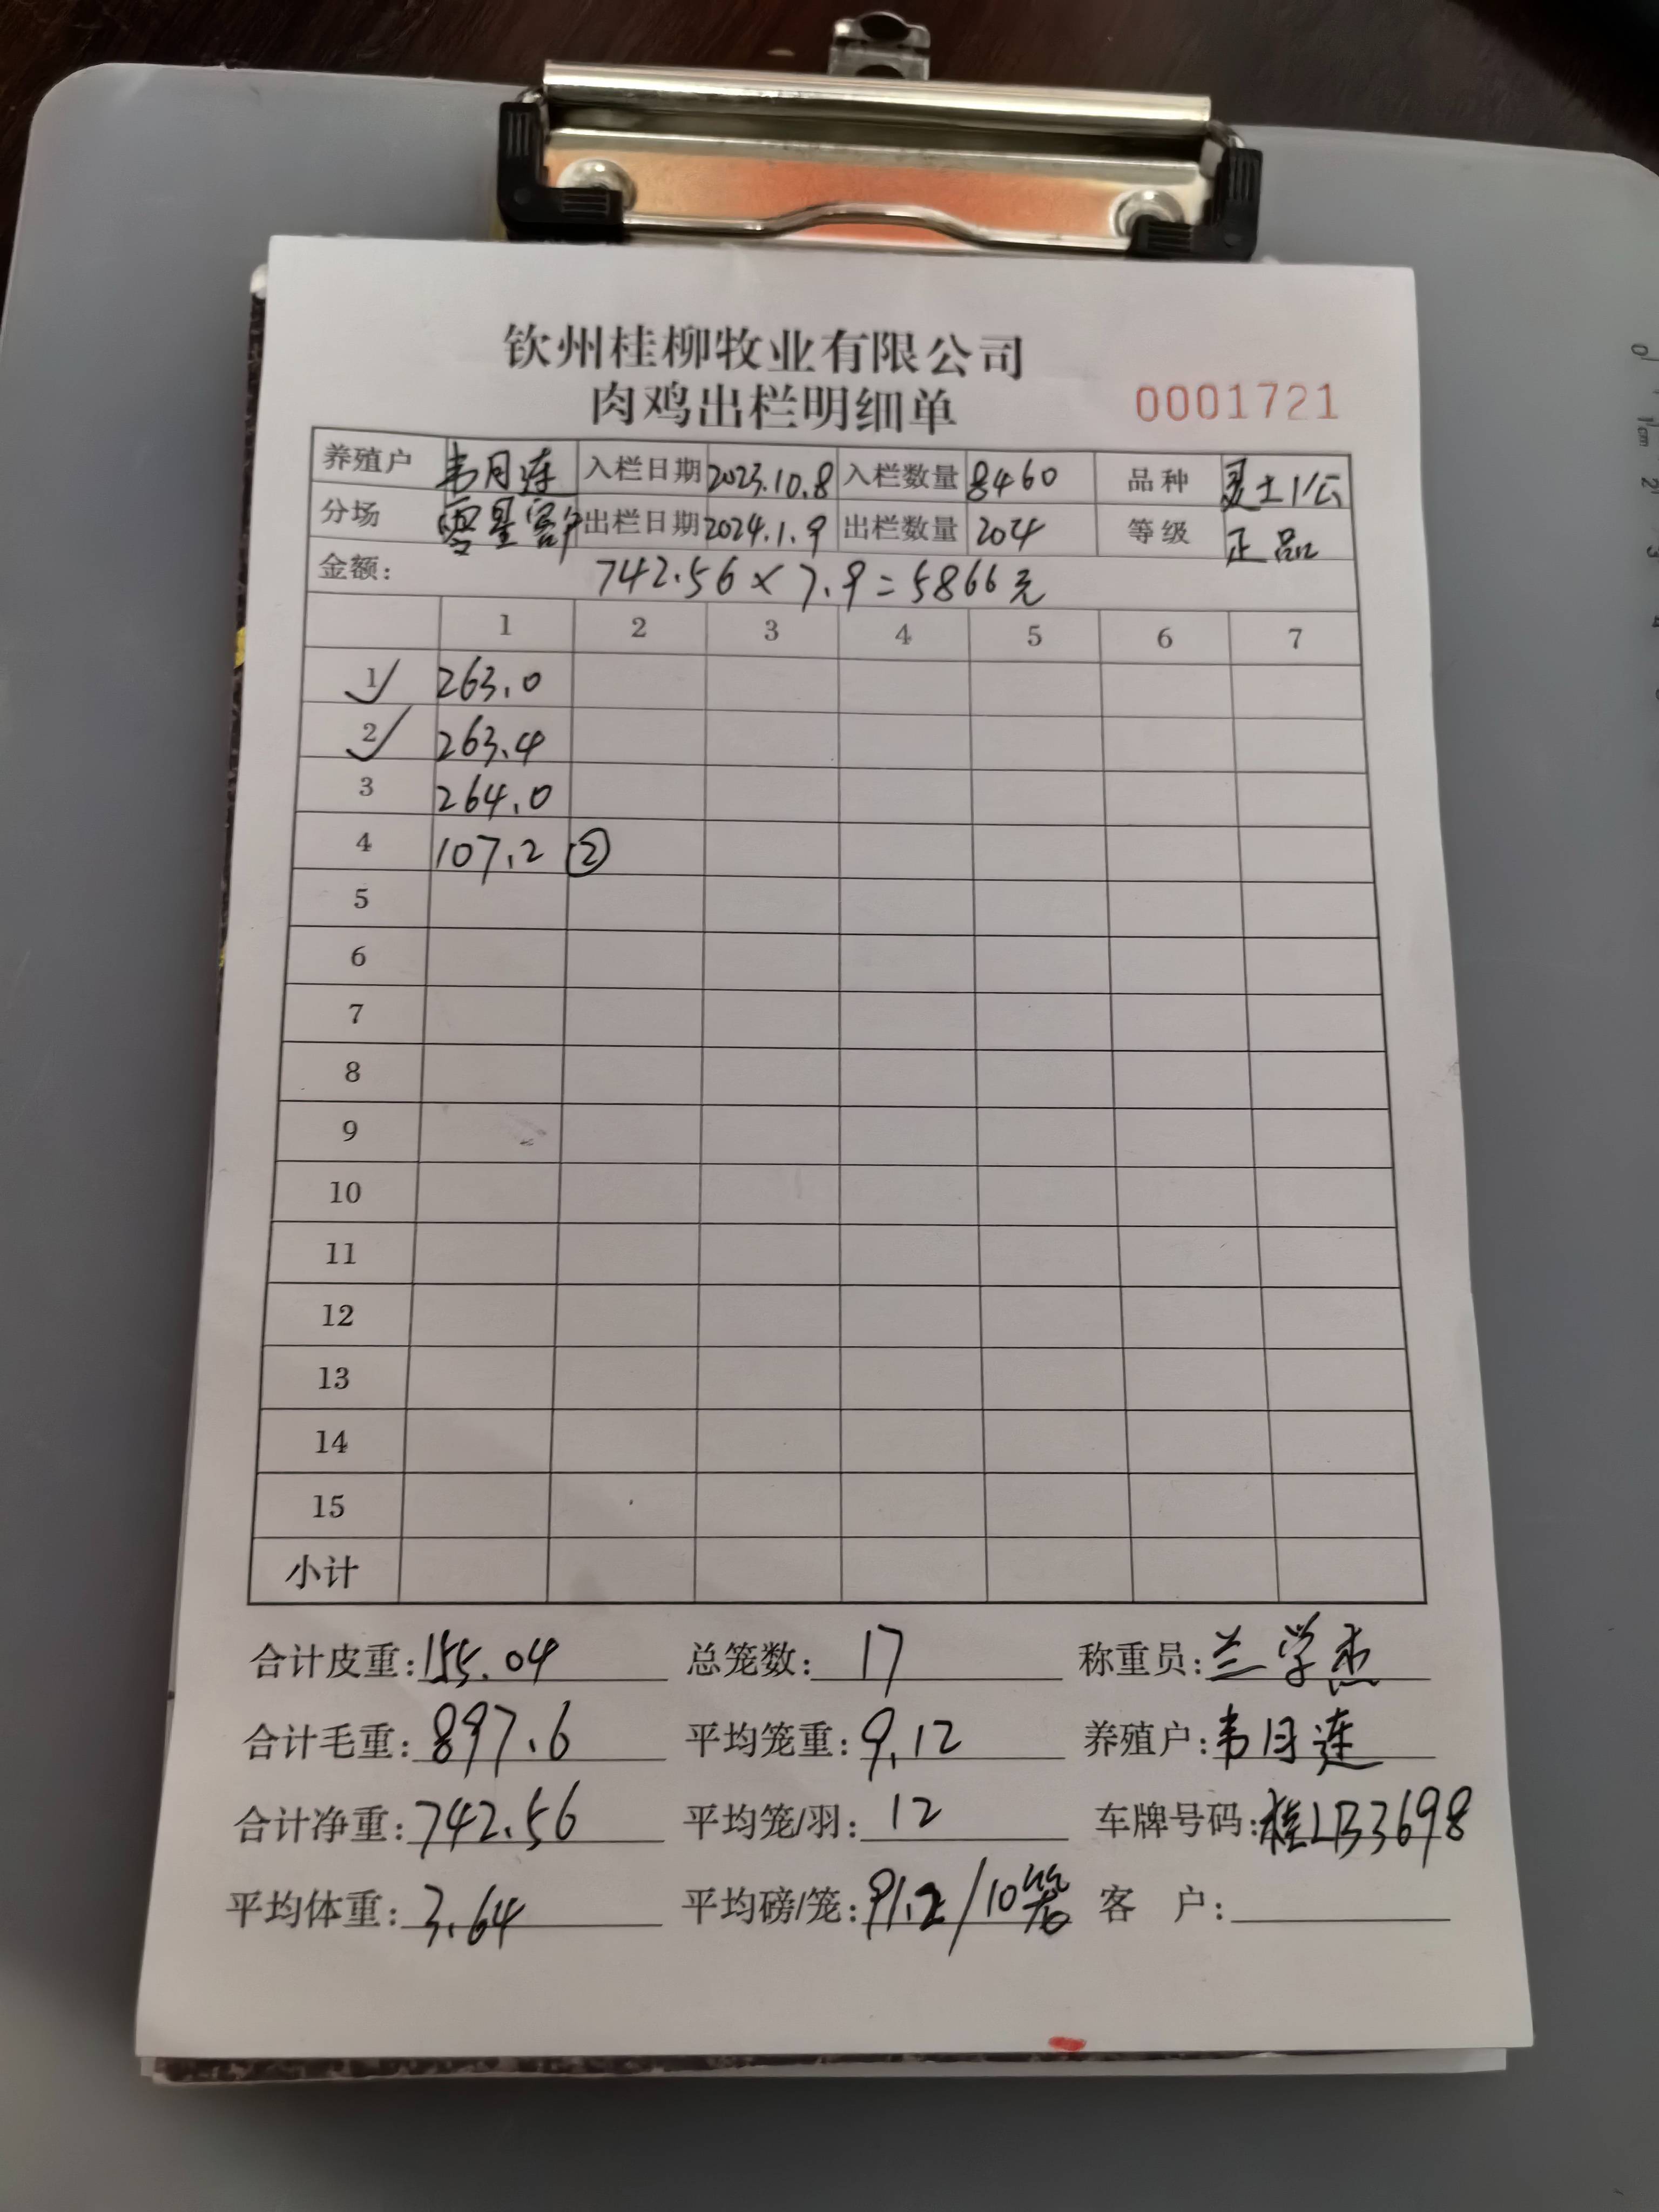 钦州桂柳牧业有限公司
肉鸡出栏明细单 0001721
养殖户 韦月连 入栏日期 2023.10.8 入栏数量 8460 品种 灵土1公
分场 零星客户 出栏日期 2024.1.9 出栏数量 204 等级 正品
金额: 742.56×7.9=5866元
1 2 3 4 5 6 7
1 263.0
2 263.4
3 264.0
4 107.2 ②
5
6
7
8
9
10
11
12
13
14
15
小计
合计皮重: 155.04 总笼数: 17 称重员: 兰学杰
合计毛重: 897.6 平均笼重: 9.12 养殖户: 韦月连
合计净重: 742.56 平均笼/羽: 12 车牌号码: 桂LB3698
平均体重: 3.64 平均磅/笼: 91.2/10笼 客户:
0 1cm 2 3 4